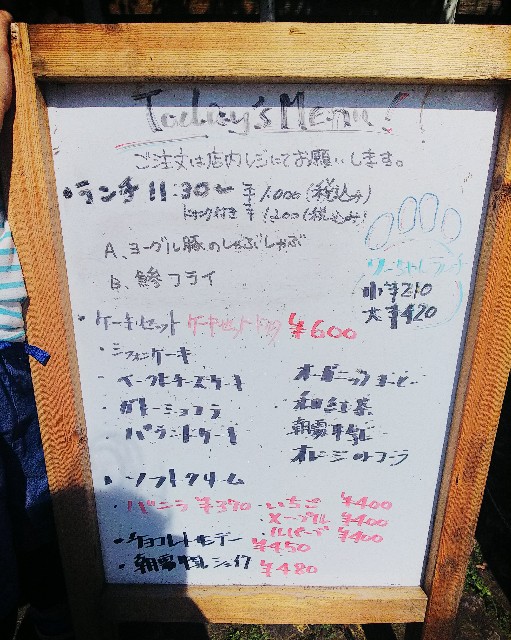 Today's Menu!!
ご注文は店内レジにてお願いします。
・ランチ 11:30〜 ¥1,000(税込み)
ドリンク付き ¥1,200(税込み)
A、ヨーグル豚のしゃぶしゃぶ
B、鯵フライ
わーちゃんランチ
小¥210
大¥420
・ケーキセット ケーキセットドリンク ¥600
・シフォンケーキ
・ベークトチーズケーキ
・ガトーショコラ
・パウンドケーキ
オーガニックコーヒー
・和紅茶
朝霧牛乳
・オレンジorコーラ
・ソフトクリーム
・バニラ ¥370
・いちご ¥400
・メープル ¥400
・ルバーブ ¥400
・チョコレートサンデー ¥450
・朝霧牛乳シェイク ¥480